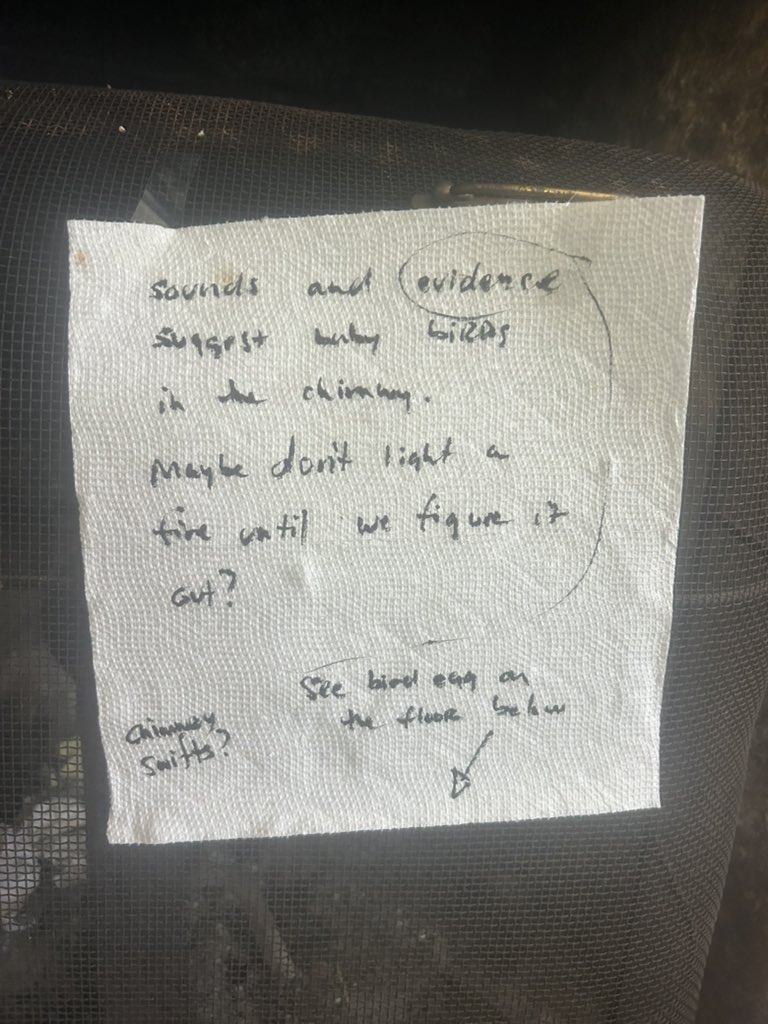 Sounds and evidence
suggest baby biRDs
in the chimney.
Maybe don't light a
fire until we figure it
out?
See bird egg on
the floor below
Chimney
Swifts?